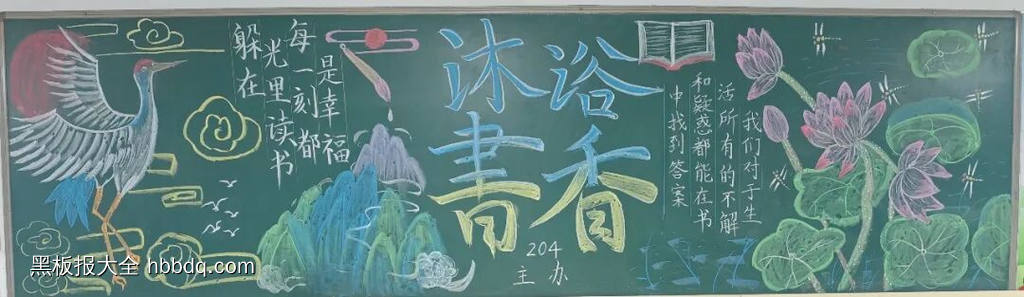 躲在
光里读书
每一刻都
是幸福
沐浴
書香
204
主办
我们对于生
活所有的不解
和疑惑都能在书
中找到答案
黑板报大全 hbbdq.com